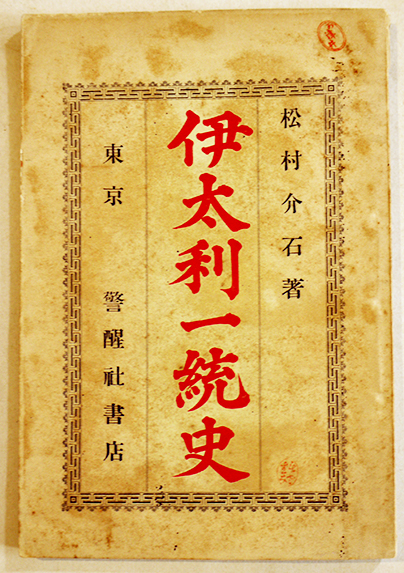 松村介石著
伊太利一統史
東京 警醒社書店